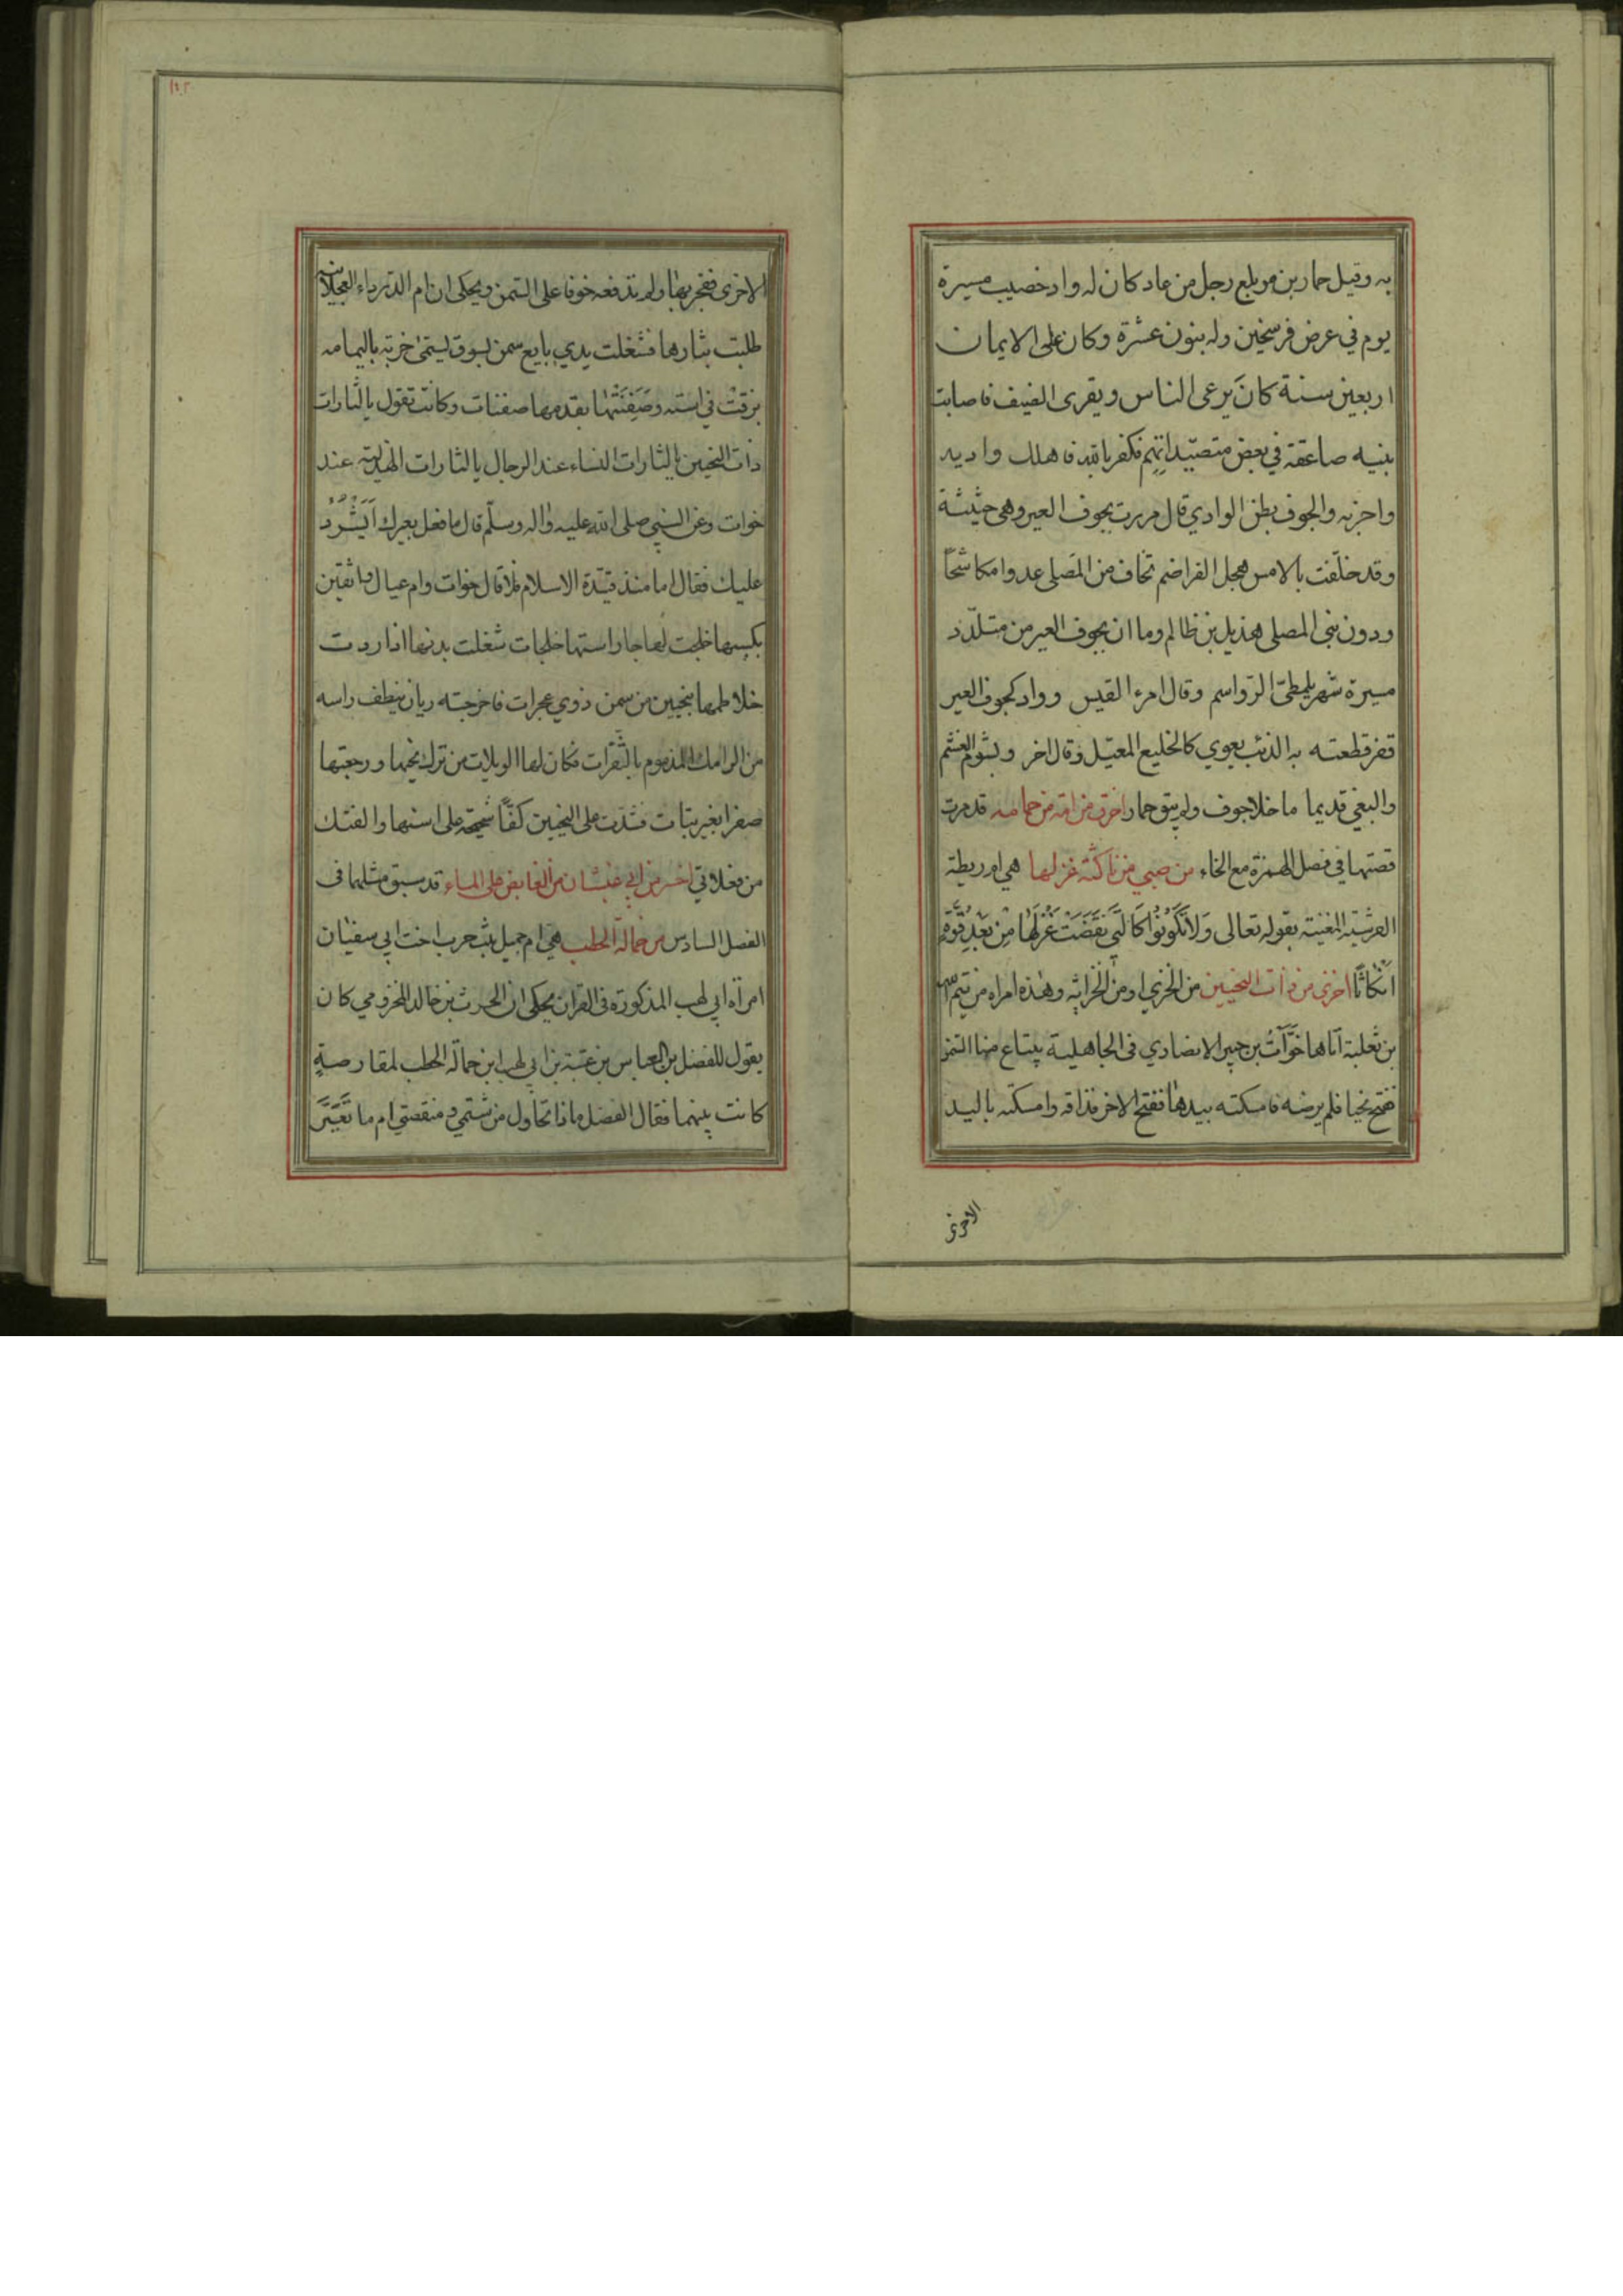 به وقيل حمار بن مويلع رجل من عاد كان له واد خصيب مسيرة
يوم في عرض فرسخين وله بنون عشرة وكان على الايمان
اربعين سنة كانَ يرعى الناس ويقرى الضيف فاصابت
بنيه صاعقة في بعض متصيّداتهم فكفر بالله فاهلك واديه
واخربه والجوف بطن الوادي قال مررت بجوف العير وهي حثيثة
وقد خلّفت بالامس هجل الفراضم تخاف من المصلى عدوا مكاشحًا
ودون بني المصلى هذيل بن ظالم وما ان بجوف العير من متلدّد
مسيرة شهر للمطيّ الرّواسم وقال امرء القيس وواد كجوف العير
قفر قطعته به الذئب يعوي كالخليع المعيّل وقال اخر وبشوم الغشم
والبغي قديما ما خلا جوف ولم يبق حمار اخرق من امة من حمامه قد مرت
قصتها في فصل الهمزة مع الخاء من صبي من ناكثة غزلها هي ام ريطة
القرشية المعنية بقوله تعالى وَلا تَكُونُوا كَالَّتِي نَقَضَتْ غَزْلَهَا مِن بَعْدِ قُوَّةٍ
اَنْكَاثًا اخزى من ذات النحيين من الخزي او من الخزاية وهٰذه امراه من تيم الله
بن ثعلبة اتاها خَوَّاتُ بن جبير الانصاري في الجاهلية يبتاع منها السّمن
ففتح نحيا فلم يرضه فامسكته بيدها ففتح الاخر فذاقه وامسكته باليد
الاخرى
١٤٣
الاخرى ففجر بها ولم تدفعه خوفا على السّمن ويحكى ان ام الدّرداء العجلانيه
طلبت بثارها فشغلت يدي بايع سمن بسوق ليستمى خربة باليمامه
بزقت في استه وصَفَنَتْهٰا بقدمها صفنات وكانت تقول يا لثارات
ذات النحيين يا لثارات النساء عند الرجال يا لثارات الهذلية عند
خوات وعن النبي صلى الله عليه واله وسلّم قال ما فعل بعيرك اَيَشْرُدُ
عليك فقال اما منذ قيّدة الاسلام فلا قال خوات وام عيال واثقين
بكسبها خلجت لها جار استها خلجات شغلت بدنها اذا ردت
خلاطها بنحيين من سمن ذوي عجرات فاخرجته ريان ينطف راسه
من الرامك المذموم بالثّقرات فكان لها الويلات من ترك نحيها ورجعتها
صفرا بغير بتات فشدّت على النحيين كفّاً شحيحة على استها والفتك
من فعلاتي اخسر من ابي غبشان من القابض على الماء قد سبق مثلهما فى
الفصل السادس من حمالة الحطب هي ام جميل بنت حرب اخت ابي سفيٰان
امراة ابي لهب المذكورة فى القران يحكى ان الحرث بن خالد المخزومي كان
يقول للفضل بن العباس بن عتبة بن ابي لهب ابن حمالة الحطب لمقارصةٍ
كانت بينهما فقال الفضل ماذا تحاول من شتمي ومنقصتي ام ما تعَيَّرَ